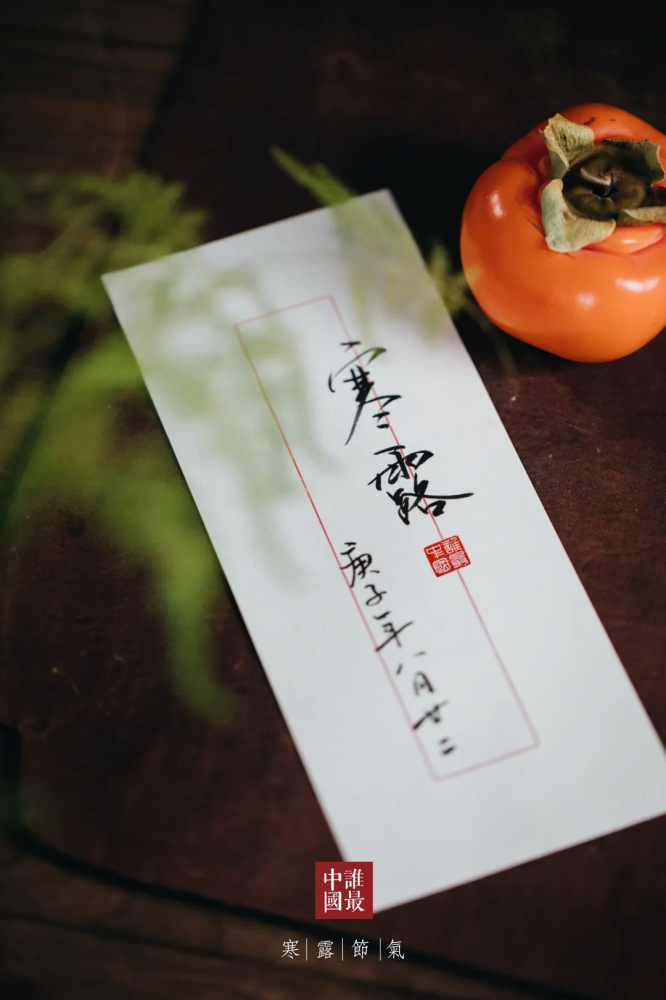 寒露
庚子年八月廿二
誰最中國
誰最中國
寒|露|節|氣